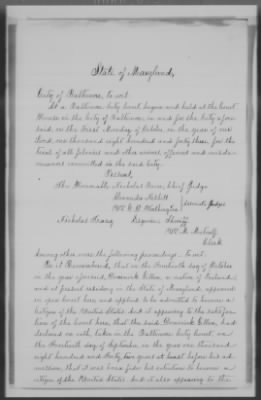 State of Maryland,
City of Baltimore, to wit:
At a Baltimore City Court, begun and held at the Court
House in the City of Baltimore, in and for the City afore
said, on the First Monday of October, in the year of our
Lord, one thousand eight hundred and forty three, for the
trial of all felonies and other crimes, offences and misde-
meanors committed in the said City.
Present,
The Honorable Nicholas Brice, Chief Judge
Nesbitt
Associate Judges
Nicholas Esquire Sheriff
Wm. M. Medcalf
Clerk
Among other were the following proceedings, to wit:
Be it Remembered, that on the Fourteenth day of October
in the year aforesaid, a native of Ireland
and at present residing in the State of Maryland, appeared
in open Court here, and applied to be admitted to become a
citizen of the United States. And it appearing to the satisfac
tion of the Court here, that the said
declared on oath, taken in the Baltimore City Court, on
the Fourteenth day of September in the year one thousand
eight hundred and Forty two years at least before his ad-
mission, that it was bona fide his intention to become a
citizen of the United States. And it also appearing to the